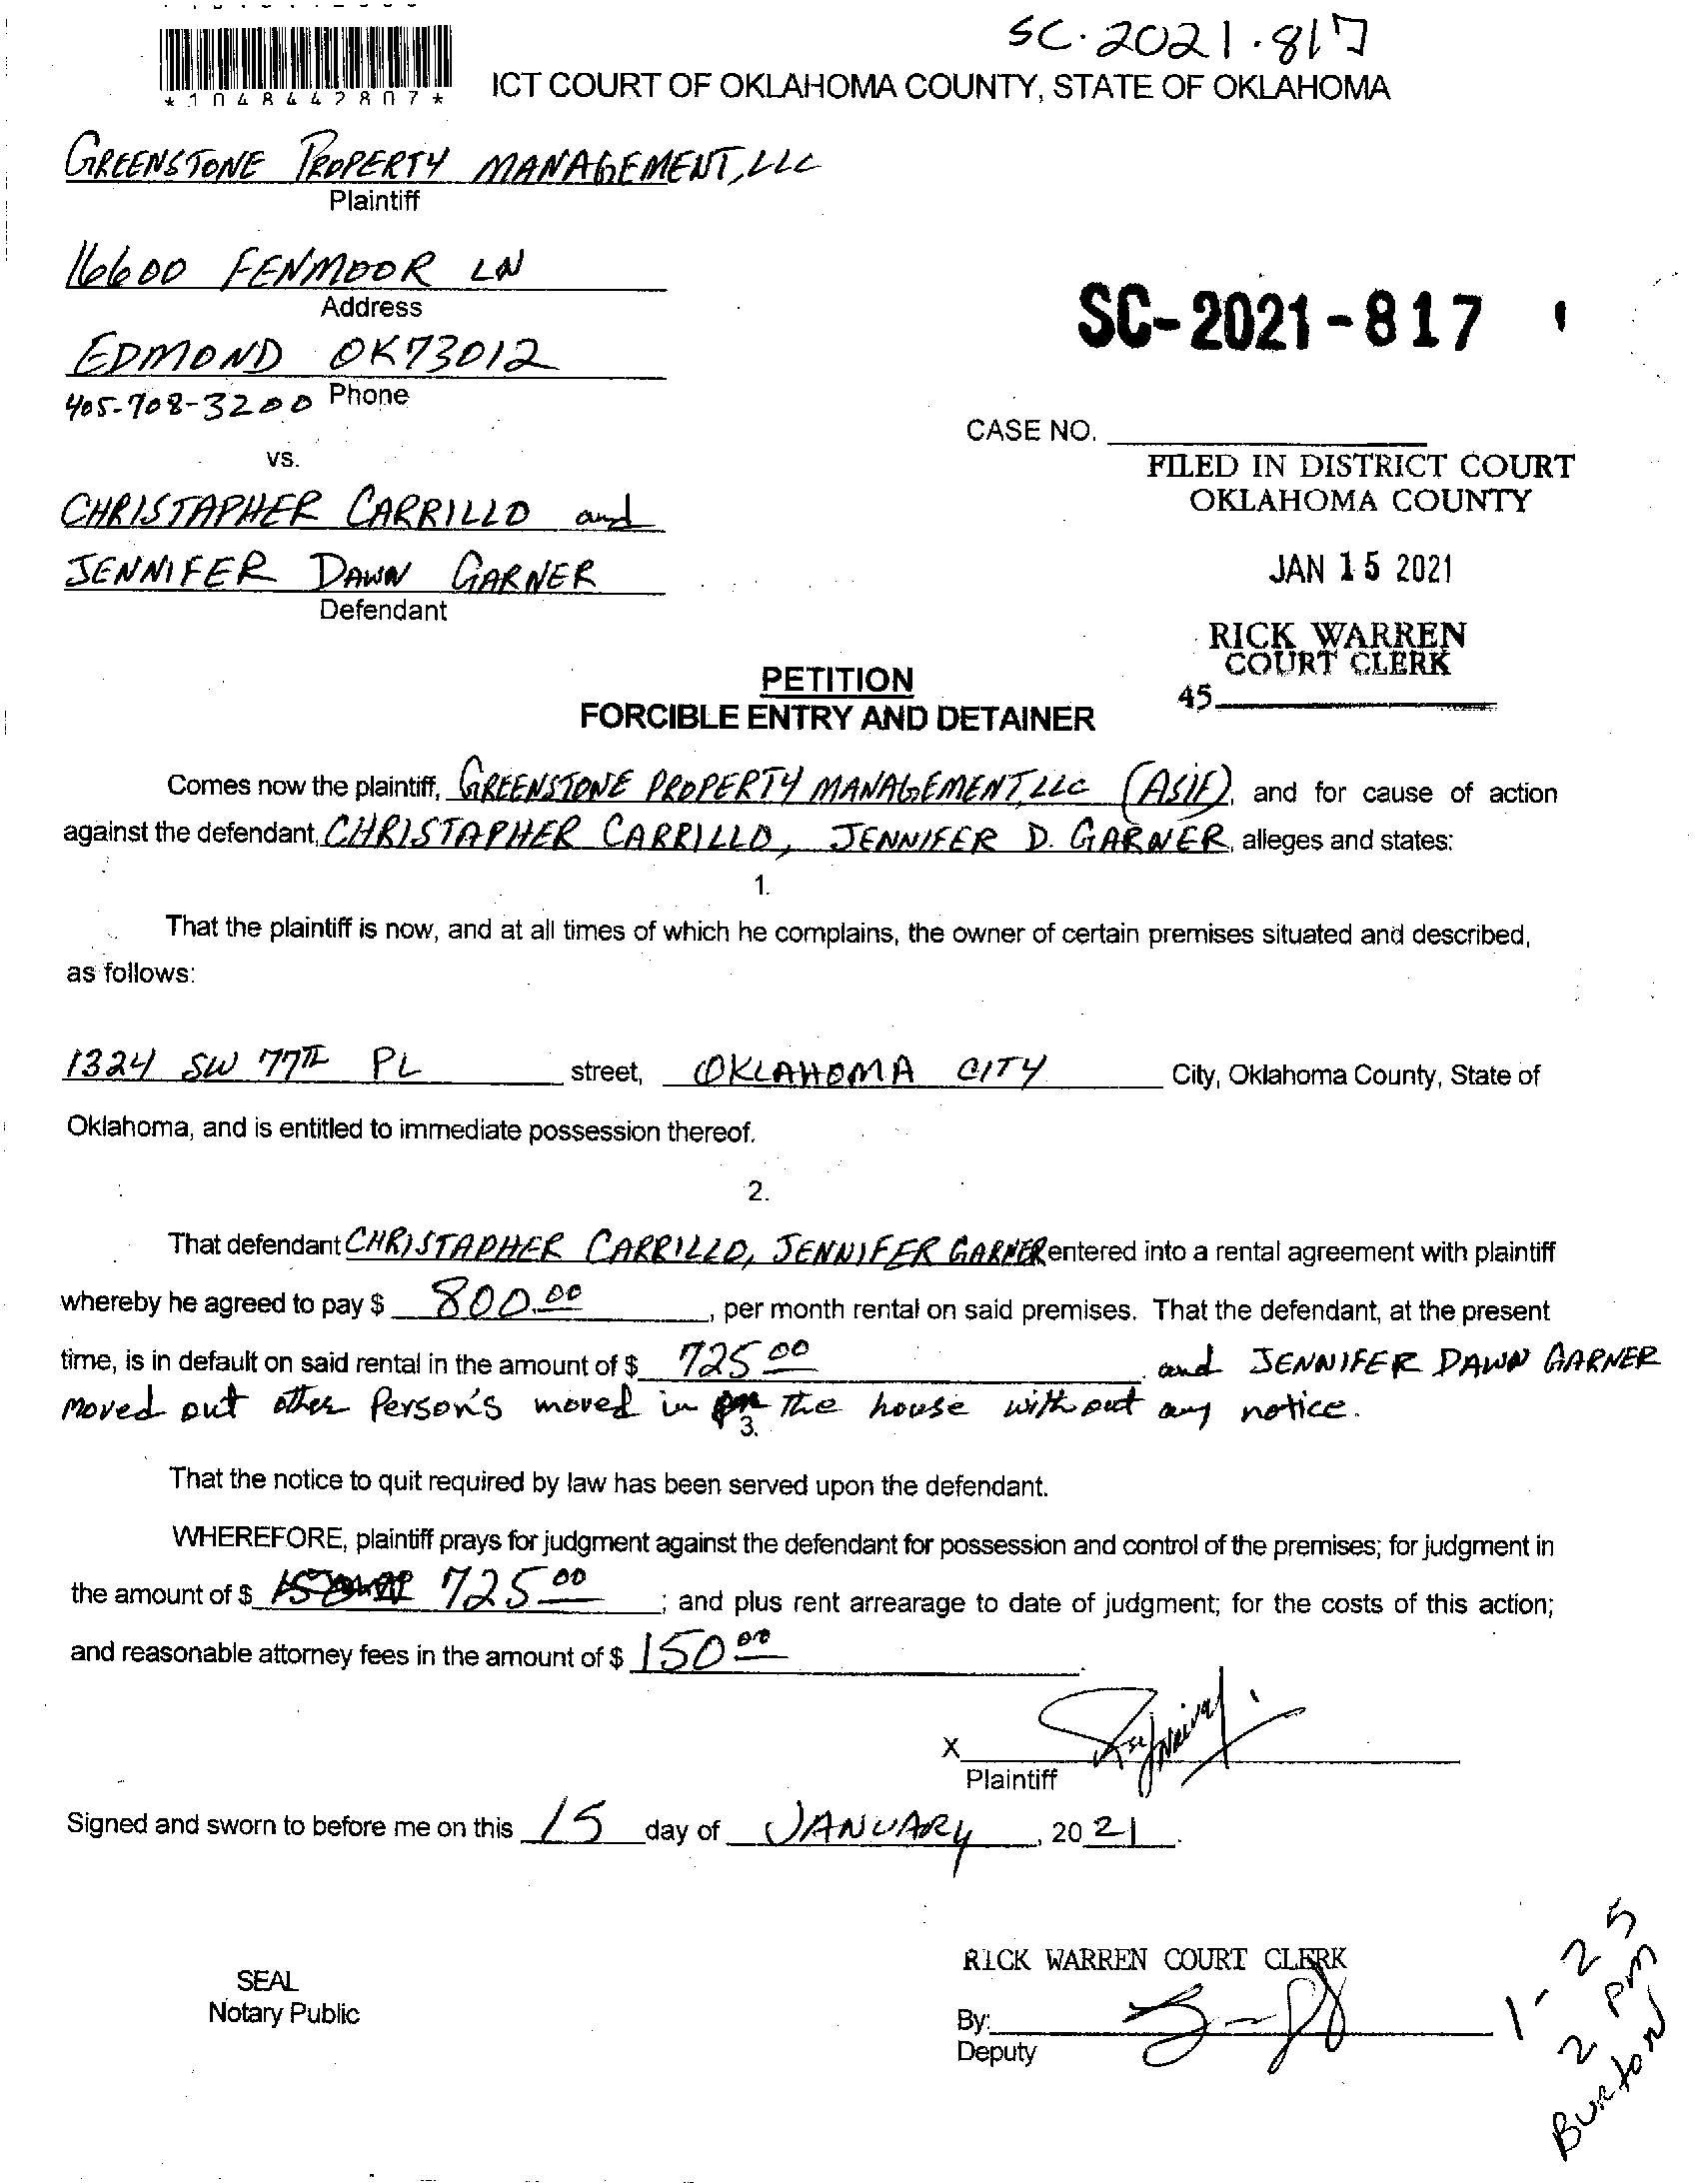 SC.2021.817
*1048442807*
ICT COURT OF OKLAHOMA COUNTY, STATE OF OKLAHOMA
GREENSTONE PROPERTY MANAGEMENT, LLC
Plaintiff
16600 FENMOOR LN
Address
SC-2021-817
EDMOND OK 73012
405-708-3200 Phone
CASE NO.
vs.
FILED IN DISTRICT COURT
OKLAHOMA COUNTY
CHRISTAPHER CARRILLO and
JAN 15 2021
JENNIFER DAWN GARNER
Defendant
RICK WARREN
COURT CLERK
45
PETITION
FORCIBLE ENTRY AND DETAINER
Comes now the plaintiff, GREENSTONE PROPERTY MANAGEMENT, LLC (ASIF), and for cause of action
against the defendant, CHRISTAPHER CARRILLO, JENNIFER D. GARNER, alleges and states:
1.
That the plaintiff is now, and at all times of which he complains, the owner of certain premises situated and described,
as follows:
1324 SW 77TH PL street, OKLAHOMA CITY City, Oklahoma County, State of
Oklahoma, and is entitled to immediate possession thereof.
2.
That defendant CHRISTAPHER CARRILLO, JENNIFER GARNER entered into a rental agreement with plaintiff
whereby he agreed to pay $ 800.00, per month rental on said premises. That the defendant, at the present
time, is in default on said rental in the amount of $ 725 00. and JENNIFER DAWN GARNER
moved out other Person's moved in The house without any notice.
3.
That the notice to quit required by law has been served upon the defendant.
WHEREFORE, plaintiff prays for judgment against the defendant for possession and control of the premises; for judgment in
the amount of $ 725 00; and plus rent arrearage to date of judgment; for the costs of this action;
and reasonable attorney fees in the amount of $ 150 00.
X
Plaintiff
Signed and sworn to before me on this 15 day of JANUARY, 2021.
RICK WARREN COURT CLERK
SEAL
Notary Public
By:
Deputy
1-25
2 pm
Burton